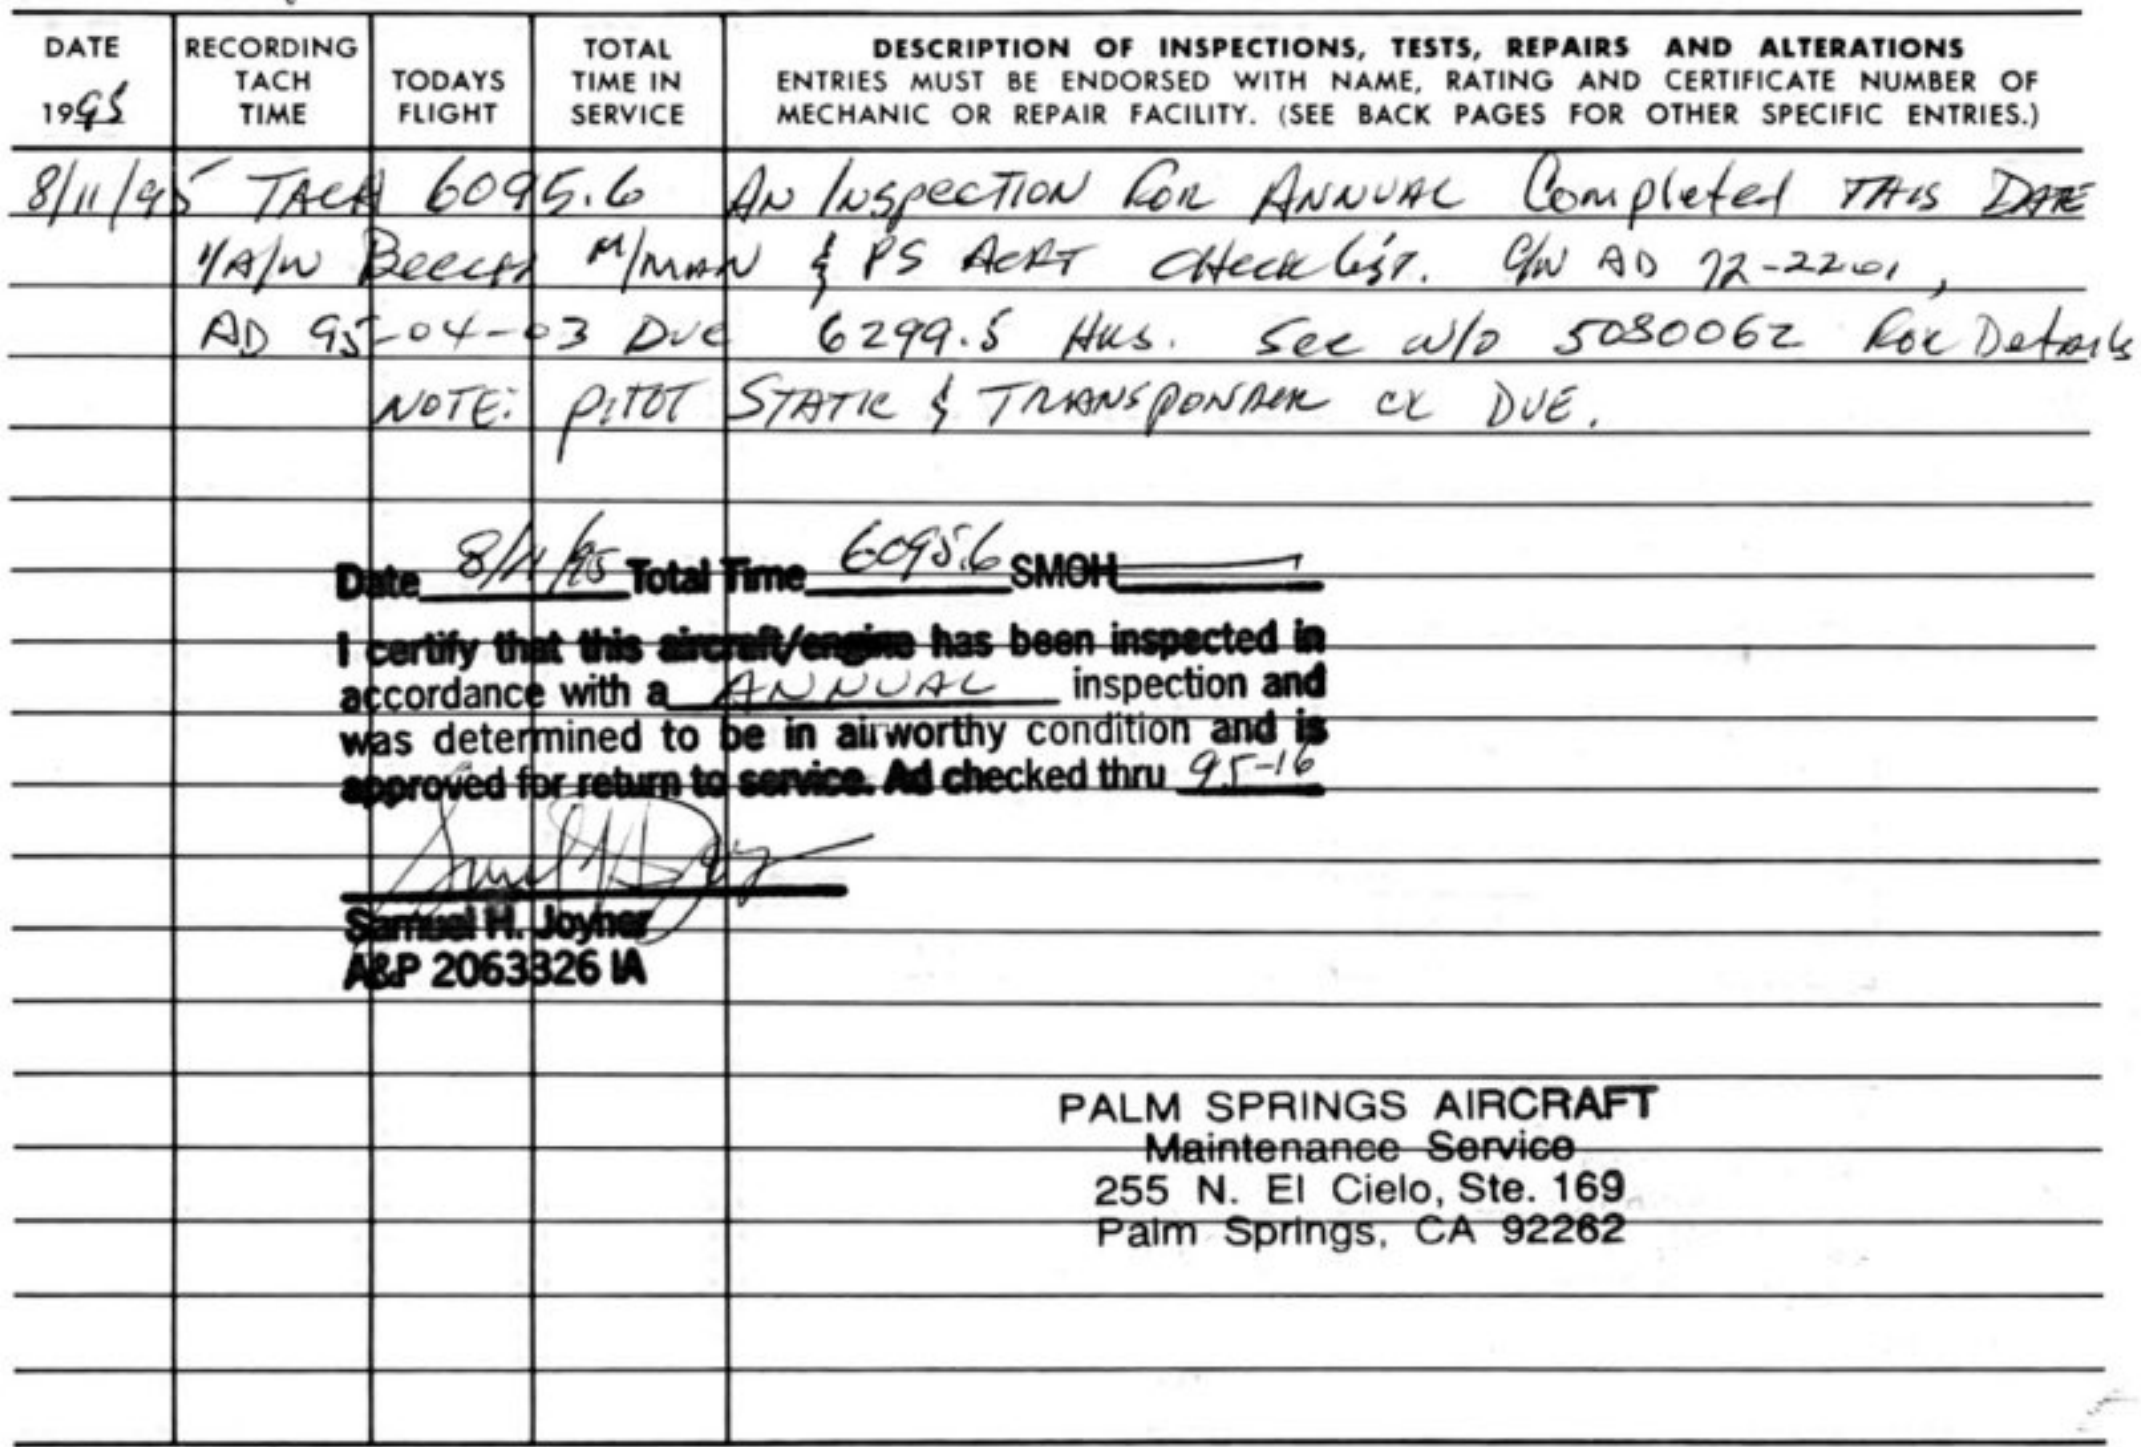 DATE
1995
RECORDING
TACH
TIME
TODAYS
FLIGHT
TOTAL
TIME IN
SERVICE
DESCRIPTION OF INSPECTIONS, TESTS, REPAIRS AND ALTERATIONS
ENTRIES MUST BE ENDORSED WITH NAME, RATING AND CERTIFICATE NUMBER OF
MECHANIC OR REPAIR FACILITY. (SEE BACK PAGES FOR OTHER SPECIFIC ENTRIES.)
8/11/95 TACH 6095.6 AN INSPECTION FOR ANNUAL Completed THIS DATE
I/A/W Beech M/MAN & PS ACRT CHECKLIST. C/W AD 72-2201,
AD 95-04-03 Due 6299.5 HRS. See W/O 5080062 For Details
NOTE: PITOT STATIC & TRANSPONDER CK DUE.
Date 8/11/95 Total Time 6095.6 SMOH
I certify that this aircraft/engine has been inspected in
accordance with a ANNUAL inspection and
was determined to be in airworthy condition and is
approved for return to service. Ad checked thru 95-16
Samuel H. Joyner
A&P 2063326 IA
PALM SPRINGS AIRCRAFT
Maintenance Service
255 N. El Cielo, Ste. 169
Palm Springs, CA 92262